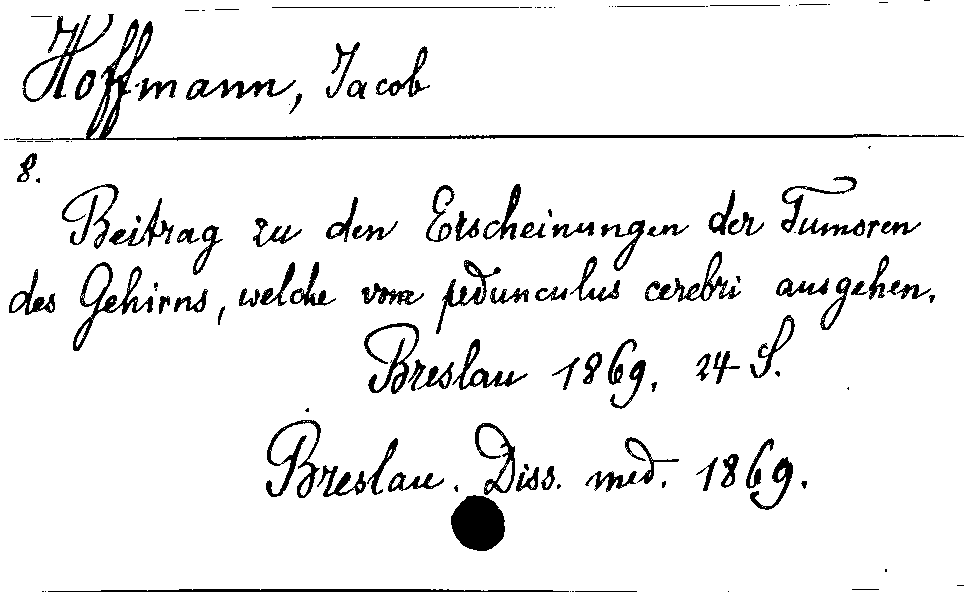 Hoffmann, Jacob
8.
Beitrag zu den Erscheinungen der Tumoren
des Gehirns, welche vom pedunculus cerebri ausgehen.
Breslau 1869. 24 S.
Breslau. Diss. med. 1869.